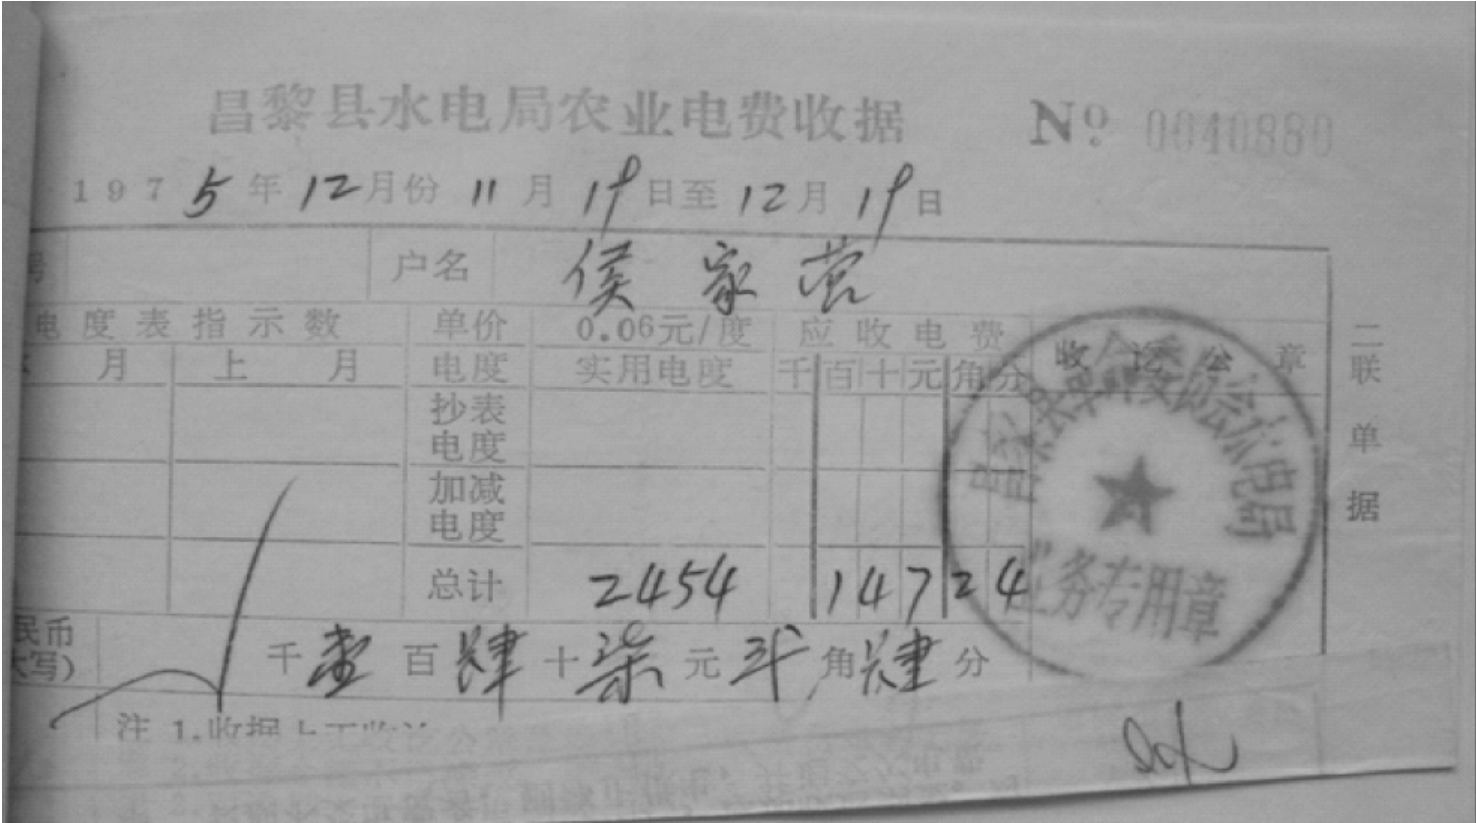 昌黎县水电局农业电费收据 No 0040880
1975年12月份11月19日至12月19日
号 户名 侯家营
电度表指示数 单价 0.06元/度 应收电费
月 上月 电度 实用电度 千百十元角分 收讫公章
抄表电度
加减电度
总计 2454 147 24
民币大写) 千壹百肆十柒元弍角肆分
注 1.收据
二联单据
昌黎县革命委员会水电局
业务专用章